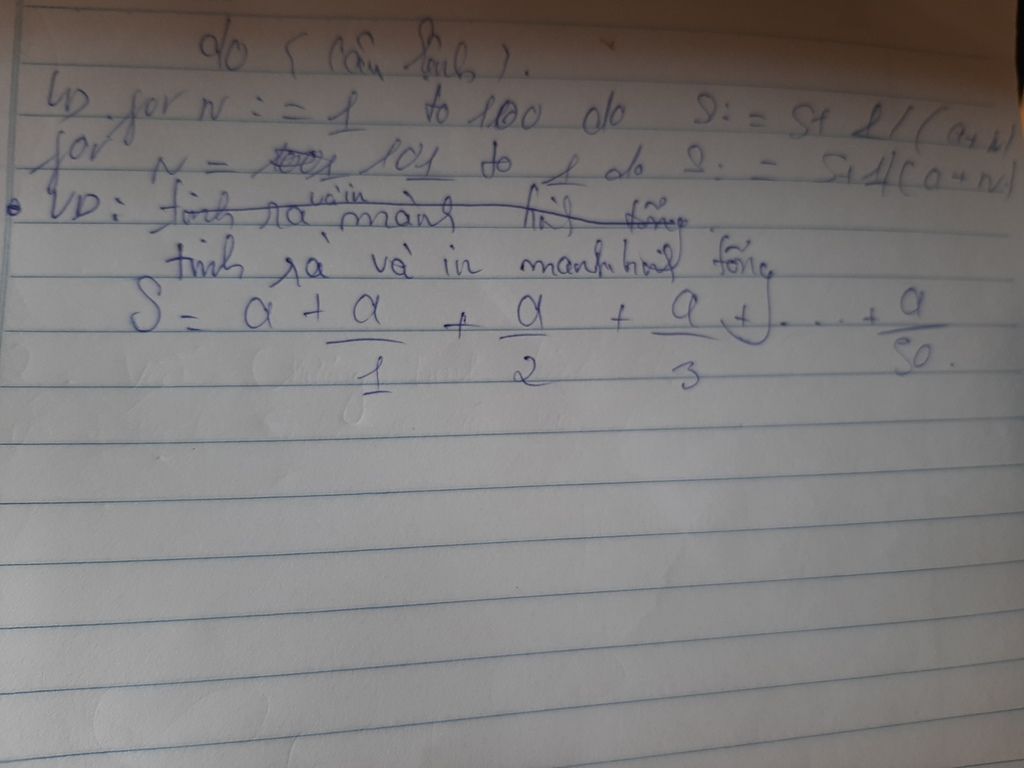 do (câu lệnh).
VD for N := 1 to 100 do S: = S+ 1/(a+N)
for N = 101 to 1 do S: = S+1/(a+N)
VD: tính ra và in mành hình tổng.
tinh rà và in manh hình tổng
S = a + a/1 + a/2 + a/3 + .... + a/50.